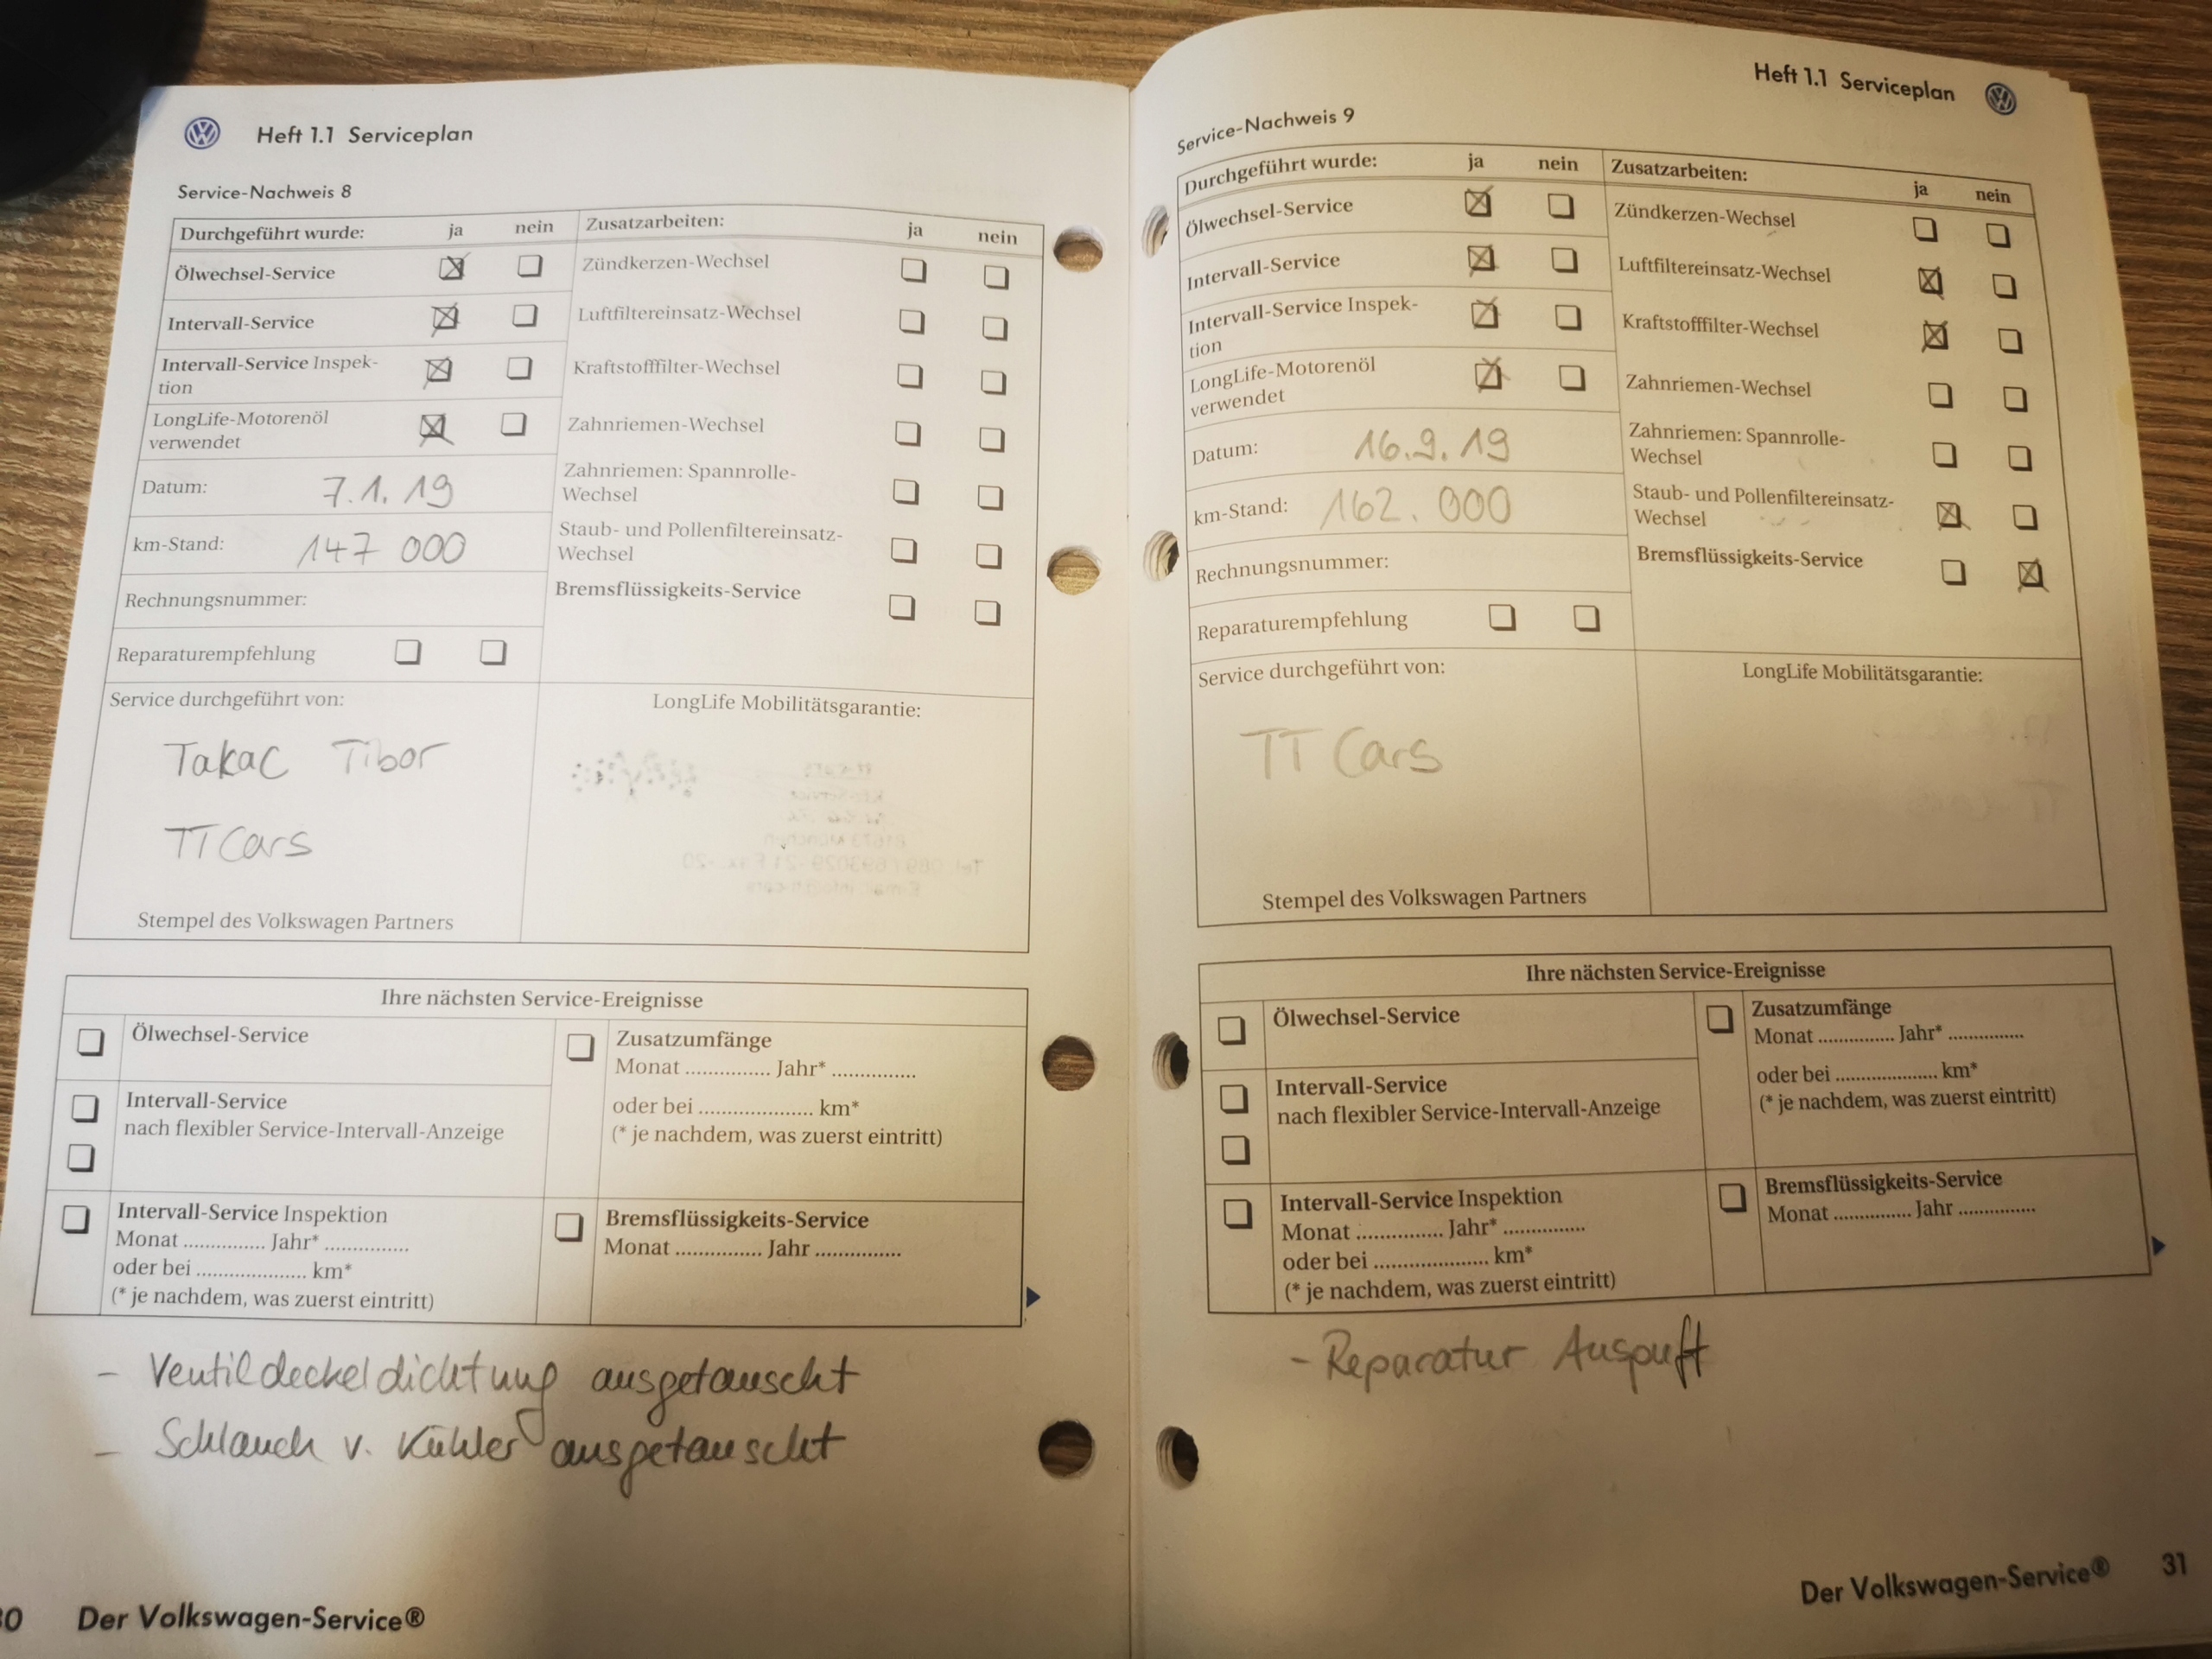 Heft 1.1 Serviceplan
Service-Nachweis 8
Durchgeführt wurde: ja nein Zusatzarbeiten: ja nein
Ölwechsel-Service ☒ ☐ Zündkerzen-Wechsel ☐ ☐
Intervall-Service ☒ ☐ Luftfiltereinsatz-Wechsel ☐ ☐
Intervall-Service Inspek-
tion ☒ ☐ Kraftstofffilter-Wechsel ☐ ☐
LongLife-Motorenöl
verwendet ☒ ☐ Zahnriemen-Wechsel ☐ ☐
Datum: 7.1.19 Zahnriemen: Spannrolle-
Wechsel ☐ ☐
km-Stand: 147 000 Staub- und Pollenfiltereinsatz-
Wechsel ☐ ☐
Rechnungsnummer: Bremsflüssigkeits-Service ☐ ☐
Reparaturempfehlung ☐ ☐
Service durchgeführt von: LongLife Mobilitätsgarantie:
Takac Tibor
TT Cars
Stempel des Volkswagen Partners
Ihre nächsten Service-Ereignisse
☐ Ölwechsel-Service ☐ Zusatzumfänge
Monat ............... Jahr* ...............
☐ Intervall-Service oder bei .................... km*
nach flexibler Service-Intervall-Anzeige (* je nachdem, was zuerst eintritt)
☐
☐ Intervall-Service Inspektion ☐ Bremsflüssigkeits-Service
Monat ............... Jahr* ............... Monat ............... Jahr ...............
oder bei .................... km*
(* je nachdem, was zuerst eintritt)
- Ventildeckeldichtung ausgetauscht
- Schlauch v. Kühler ausgetauscht
Der Volkswagen-Service®
Heft 1.1 Serviceplan
Service-Nachweis 9
Durchgeführt wurde: ja nein Zusatzarbeiten: ja nein
Ölwechsel-Service ☒ ☐ Zündkerzen-Wechsel ☐ ☐
Intervall-Service ☒ ☐ Luftfiltereinsatz-Wechsel ☒ ☐
Intervall-Service Inspek-
tion ☒ ☐ Kraftstofffilter-Wechsel ☒ ☐
LongLife-Motorenöl
verwendet ☒ ☐ Zahnriemen-Wechsel ☐ ☐
Datum: 16.9.19 Zahnriemen: Spannrolle-
Wechsel ☐ ☐
km-Stand: 162.000 Staub- und Pollenfiltereinsatz-
Wechsel ☒ ☐
Rechnungsnummer: Bremsflüssigkeits-Service ☐ ☒
Reparaturempfehlung ☐ ☐
Service durchgeführt von: LongLife Mobilitätsgarantie:
TT Cars
Stempel des Volkswagen Partners
Ihre nächsten Service-Ereignisse
☐ Ölwechsel-Service ☐ Zusatzumfänge
Monat ............... Jahr* ...............
☐ Intervall-Service oder bei .................... km*
nach flexibler Service-Intervall-Anzeige (* je nachdem, was zuerst eintritt)
☐
☐ Intervall-Service Inspektion ☐ Bremsflüssigkeits-Service
Monat ............... Jahr* ............... Monat ............... Jahr ...............
oder bei .................... km*
(* je nachdem, was zuerst eintritt)
- Reparatur Auspuff
Der Volkswagen-Service® 31